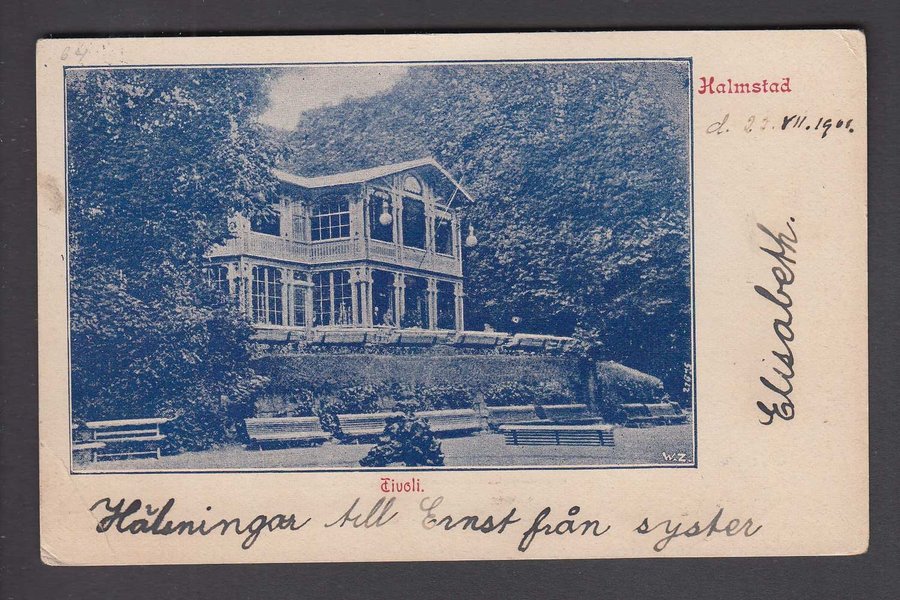 64
Halmstad
d. 22. VII. 1901.
Elisabeth.
W.Z.
Tivoli.
Hälsningar till Ernst från syster